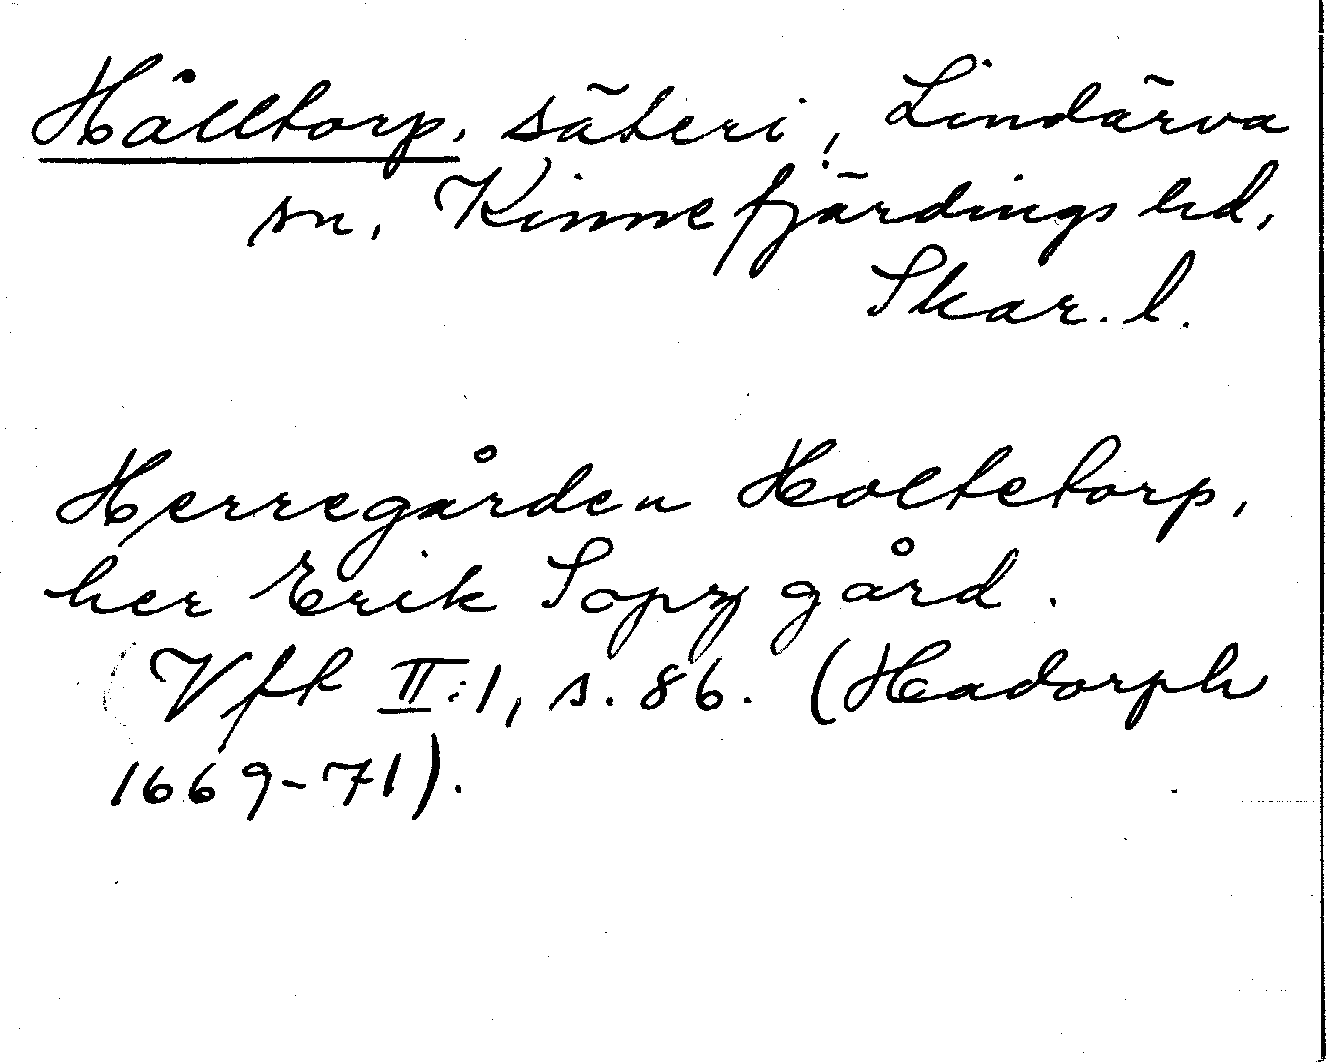 Hålltorp, säteri, Lindärva
sn, Kinnefjärdings hd,
Skar. l.
Herregården Holtetorp,
her Erik Sopz gård.
Vfk II:1, s. 86. (Hadorph
1669-71).